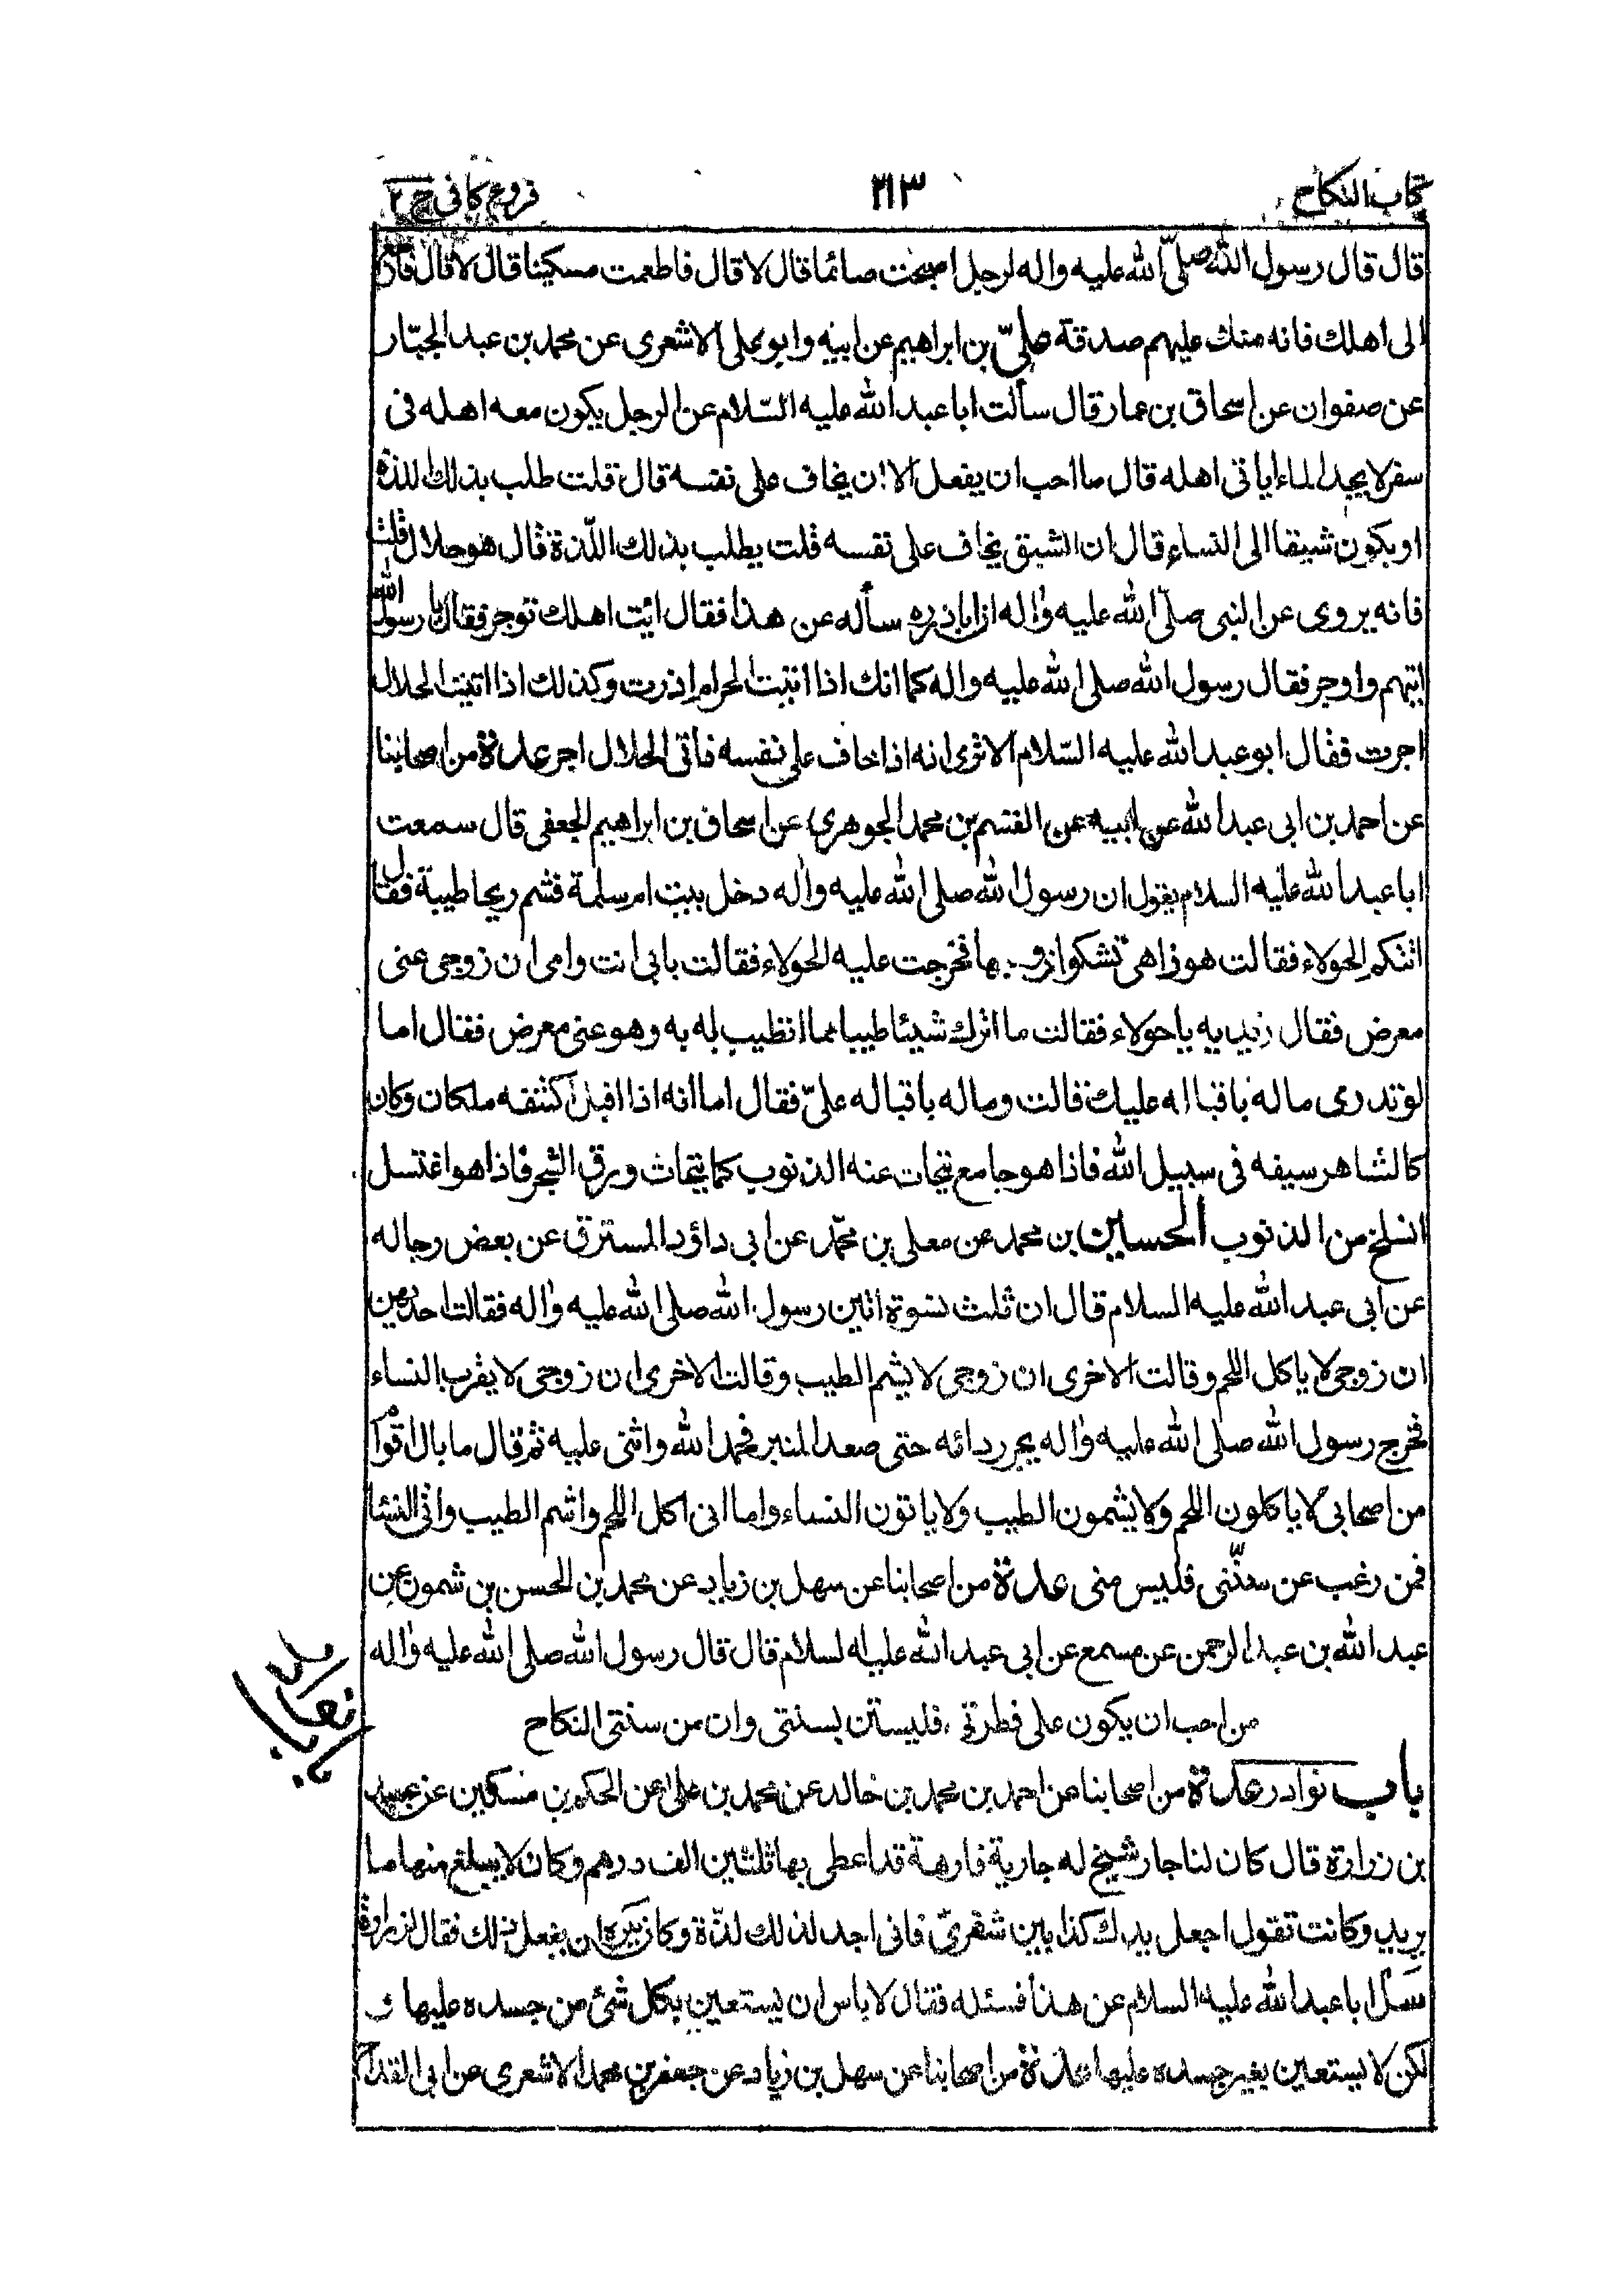 كتاب النكاح ٢١٣ فروع كافى ج ٢
قال قال رسول الله صلّى الله عليه واله لرجل اصبحت صائما قال لا قال فاطعمت مسكينا قال لا قال فارجع
الى اهلك فانه منك عليهم صدقة علىّ بن ابراهيم عن ابيه وابو على الاشعرى عن محمد بن عبد الجبّار
عن صفوان عن اسحاق بن عمار قال سألت ابا عبد الله عليه السّلام عن الرجل يكون معه اهله فى
سفر لا يجد الماء اياتى اهله قال ما احب ان يفعل الا ان يخاف على نفسه قال قلت طلب بذلك اللذة
او يكون شبقا الى النساء قال ان الشبق يخاف على نفسه قلت يطلب بذلك اللّذة قال هو حلال قلت
فانه يروى عن النبى صلّى الله عليه واله ان اباذر ره سأله عن هذا فقال ائيت اهلك توجر فقال يا رسول الله
اتيهم واوجر فقال رسول الله صلى الله عليه واله كما انك اذا اتيت الحرام ازرت وكذلك اذا اتيت الحلال
اجرت فقال ابو عبد الله عليه السّلام الا ترى انه اذا خاف على نفسه فاتى الحلال اجر عدة من اصحابنا
عن احمد بن ابى عبد الله عن ابيه عن القسم بن محمد الجوهرى عن اسحاق بن ابراهيم الجعفى قال سمعت
ابا عبد الله عليه السلام يقول ان رسول الله صلى الله عليه واله دخل بيت ام سلمة فشم ريحا طيبة فقال
اتتكم الحولاء فقالت هو ذا هى تشكو زوجها فخرجت عليه الحولاء فقالت بابى انت وامى ان زوجى عنى
معرض فقال زيديه يا حولاء فقالت ما اترك شيئا طيبا مما اتطيب له به وهو عنى معرض فقال اما
لو تدرى ما له باقباله عليك قالت وما له باقباله علىّ فقال اما انه اذا اقبل اكتنفه ملكان وكان
كالشاهر سيفه فى سبيل الله فاذا هو جامع تتحات عنه الذنوب كما يتحات ورق الشجر فاذا هو اغتسل
انسلخ من الذنوب الحسين بن محمد عن معلى بن محمّد عن ابى داؤد المسترق عن بعض رجاله
عن ابى عبد الله عليه السلام قال ان ثلث نسوة اتين رسول الله صلى الله عليه واله فقالت احديهن
ان زوجى لا ياكل اللحم وقالت الاخرى ان زوجى لا يشم الطيب وقالت الاخرى ان زوجى لا يقرب النساء
فخرج رسول الله صلى الله عليه واله يجر ردائه حتى صعد المنبر فحمد الله واثنى عليه ثم قال ما بال اقوام
من اصحابى لا ياكلون اللحم ولا يشمون الطيب ولا ياتون النساء واما انى اكل اللحم واشم الطيب واتى النساء
فمن رغب عن سنّتى فليس منى عدة من اصحابنا عن سهل بن زياد عن محمد بن الحسن بن شمون عن
عبد الله بن عبد الرحمن عن مسمع عن ابى عبد الله عليه السلام قال قال رسول الله صلى الله عليه واله
من احب ان يكون على فطرتى فليستن بسنتى وان من سنتى النكاح
باب نوادر عدة من اصحابنا عن احمد بن محمد بن خالد عن محمد بن على عن الحكم بن مسكين عن عبيد
بن زرارة قال كان لنا جار شيخ له جارية فارهة قد اعطى بها ثلثين الف درهم وكان لا يبلغ منها ما
يريد وكانت تقول اجعل يدك كذا بين شفرىّ فانى اجد لذلك لذة وكان يكره ان يفعل ذلك فقال لزرارة
سل ابا عبد الله عليه السلام عن هذا فسئله فقال لا باس ان يستعين بكل شئ من جسده عليها و
لكن لا يستعين بغير جسده عليها عدة من اصحابنا عن سهل بن زياد عن جعفر بن محمد الاشعرى عن ابن القداح